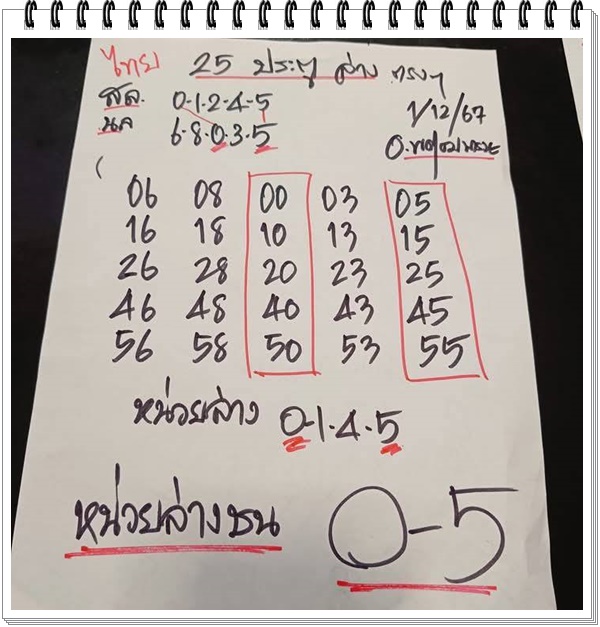 ไทย 25 ประตู ล่าง ตรงๆ
สล. 0-1-2-4-5 1/12/67
นล 6-8-0-3-5
06 08 00 03 05
16 18 10 13 15
26 28 20 23 25
46 48 40 43 45
56 58 50 53 55
หน่วยล่าง 0-1-4-5
หน่วยล่างชน 0-5